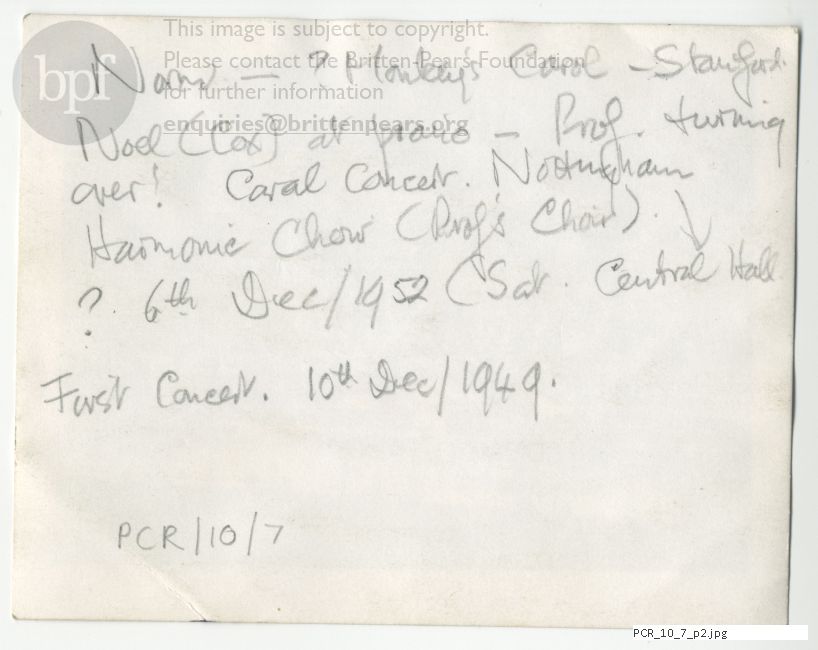 This image is subject to copyright.
Please contact the Britten-Pears Foundation
for further information
enquiries@brittenpears.org
bpf
Norma — ? Monkey's Carol — Stanford.
Noel (Cox) at piano — Prof. turning
over! Carol Concert. Nottingham
Harmonic Choir (Prof's Choir).
? 6th Dec/1952 (Sat. Central Hall
First Concert. 10th Dec/1949.
PCR/10/7
PCR_10_7_p2.jpg